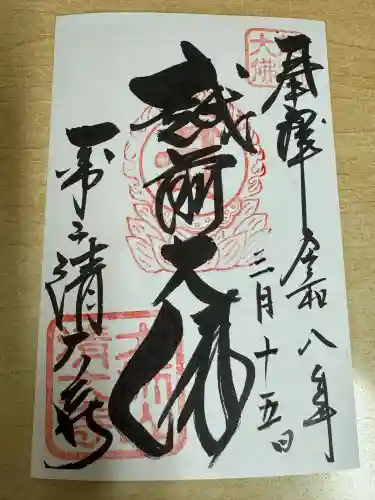 奉拝 令和八年
三月十五日
越前大佛
大師山清大寺
大佛